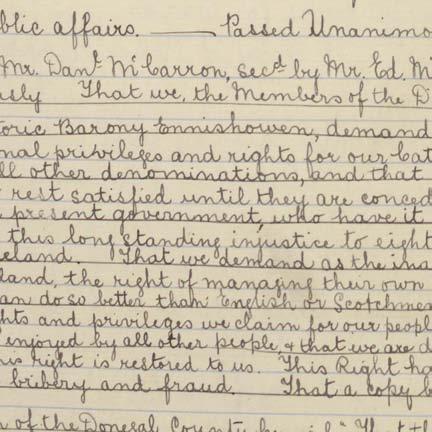 blic affairs. —— Passed Unanimo
Mr. Danl. McCarron, secd by Mr. Ed. M
usly That we, the Members of the D
toric Barony Ennishowen, demand
nal privileges and rights for our Cat
ll other denominations, and that
rest satisfied until they are conced
present government, who have it
this long standing injustice to eight
eland. That we demand as the ina
land, the right of managing their own
an do so better than English or Scotchme
hts and privileges we claim for our peopl
enjoyed by all other people, & that we are d
his right is restored to us. This Right ha
bribery and fraud. That a copy b
of the Donegal County